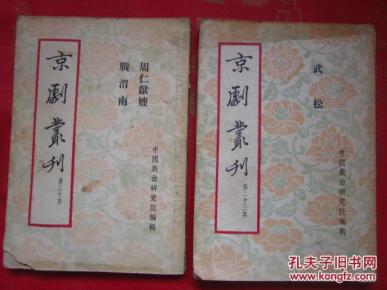 京劇叢刊
第三十集
周仁獻嫂
戰渭南
中國戲曲研究院編輯
京劇叢刊
第二十二集
武松
中國戲曲研究院編輯
孔夫子旧书网